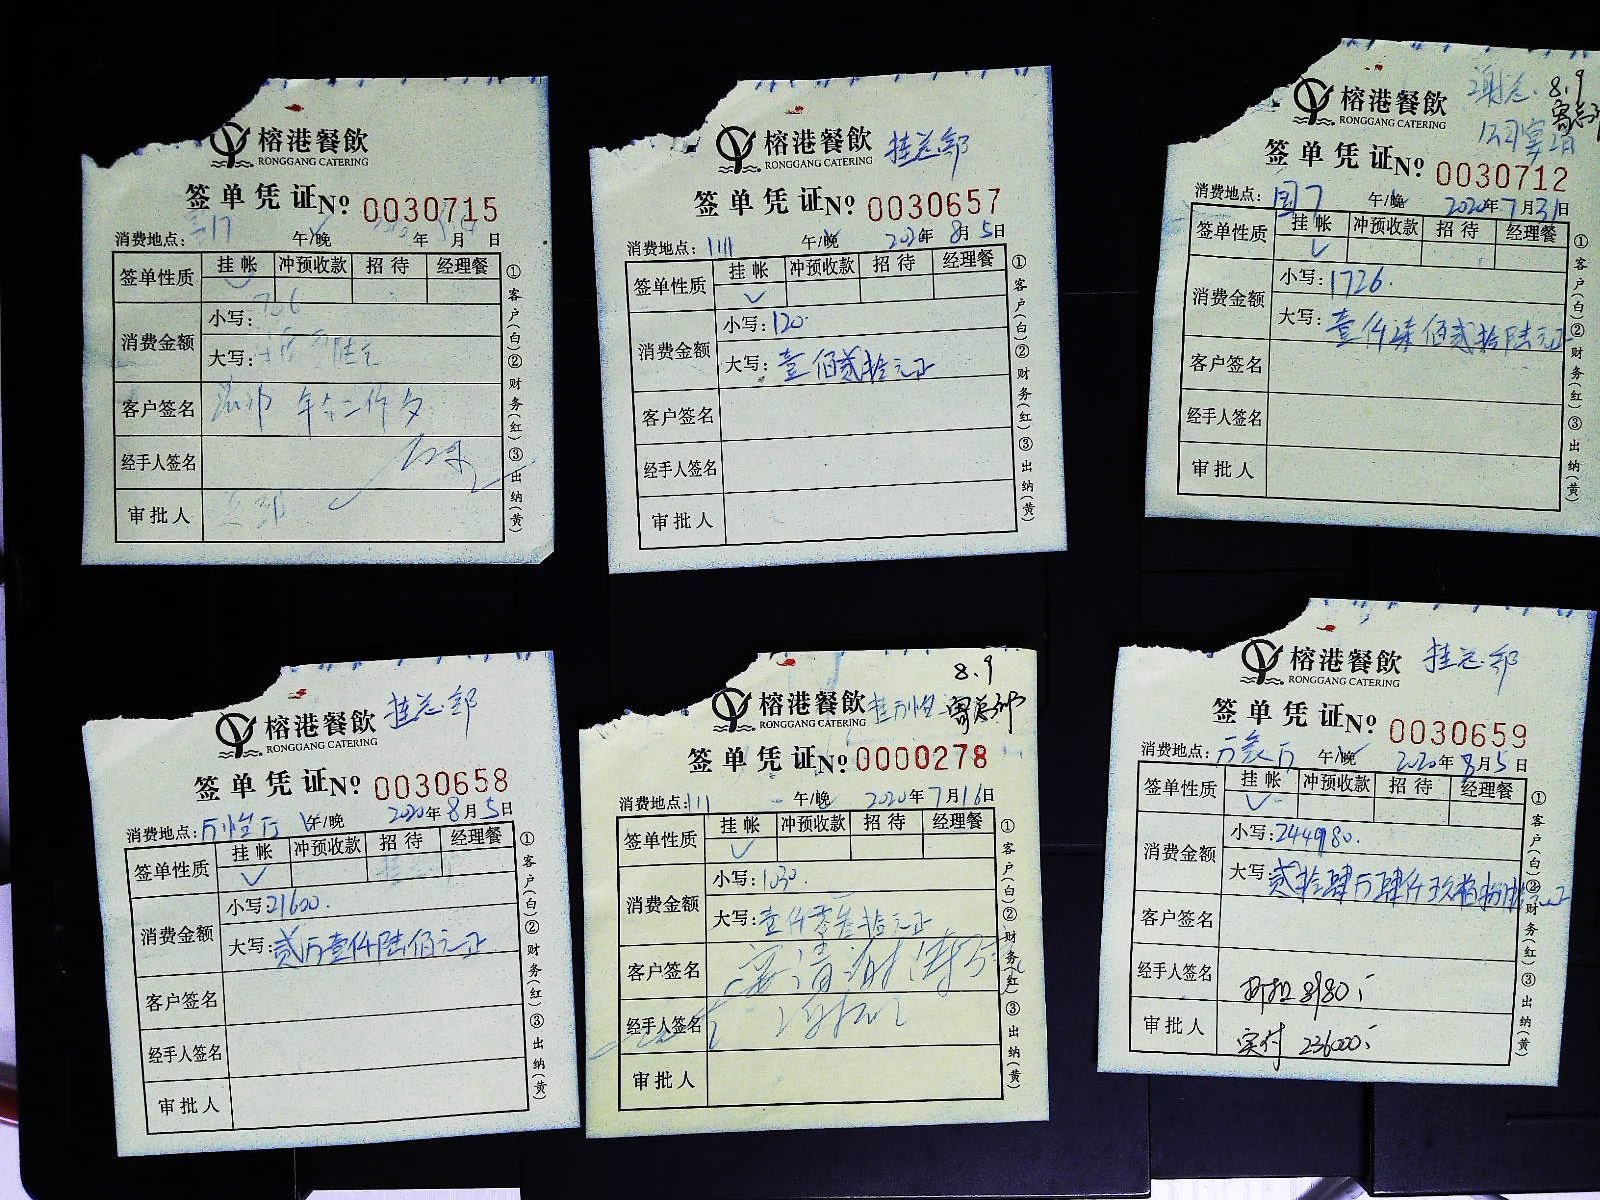 榕港餐飲
RONGGANG CATERING
签单凭证№ 0030715
消费地点: 午/晚 年 月 日
签单性质 挂帐 冲预收款 招待 经理餐
消费金额 小写:
大写:
客户签名
经手人签名
审批人
①客户(白)②财务(红)③出纳(黄)
榕港餐飲 挂总部
RONGGANG CATERING
签单凭证№ 0030657
消费地点: 午/晚 2020年8月5日
签单性质 挂帐 冲预收款 招待 经理餐
消费金额 小写:120.
大写:壹佰贰拾元正
客户签名
经手人签名
审批人
①客户(白)②财务(红)③出纳(黄)
榕港餐飲 谢总. 8.9
RONGGANG CATERING
签单凭证№ 0030712
消费地点: 午/晚 2020年7月31日
签单性质 挂帐 冲预收款 招待 经理餐
消费金额 小写:1726.
大写:壹仟柒佰贰拾陆元正
客户签名
经手人签名
审批人
①客户(白)②财务(红)③出纳(黄)
榕港餐飲 挂总部
RONGGANG CATERING
签单凭证№ 0030658
消费地点: 午/晚 2020年8月5日
签单性质 挂帐 冲预收款 招待 经理餐
消费金额 小写:21600.
大写:贰万壹仟陆佰元正
客户签名
经手人签名
审批人
①客户(白)②财务(红)③出纳(黄)
8.9
榕港餐飲
RONGGANG CATERING
签单凭证№ 0000278
消费地点: 午/晚 2020年7月16日
签单性质 挂帐 冲预收款 招待 经理餐
消费金额 小写:1030.
大写:壹仟零叁拾元正
客户签名
经手人签名
审批人
①客户(白)②财务(红)③出纳(黄)
榕港餐飲 挂总部
RONGGANG CATERING
签单凭证№ 0030659
消费地点: 午/晚 2020年8月5日
签单性质 挂帐 冲预收款 招待 经理餐
消费金额 小写:244980.
大写:贰拾肆万肆仟玖佰捌拾元正
客户签名
经手人签名 折扣 8980
审批人 实付 236000
①客户(白)②财务(红)③出纳(黄)